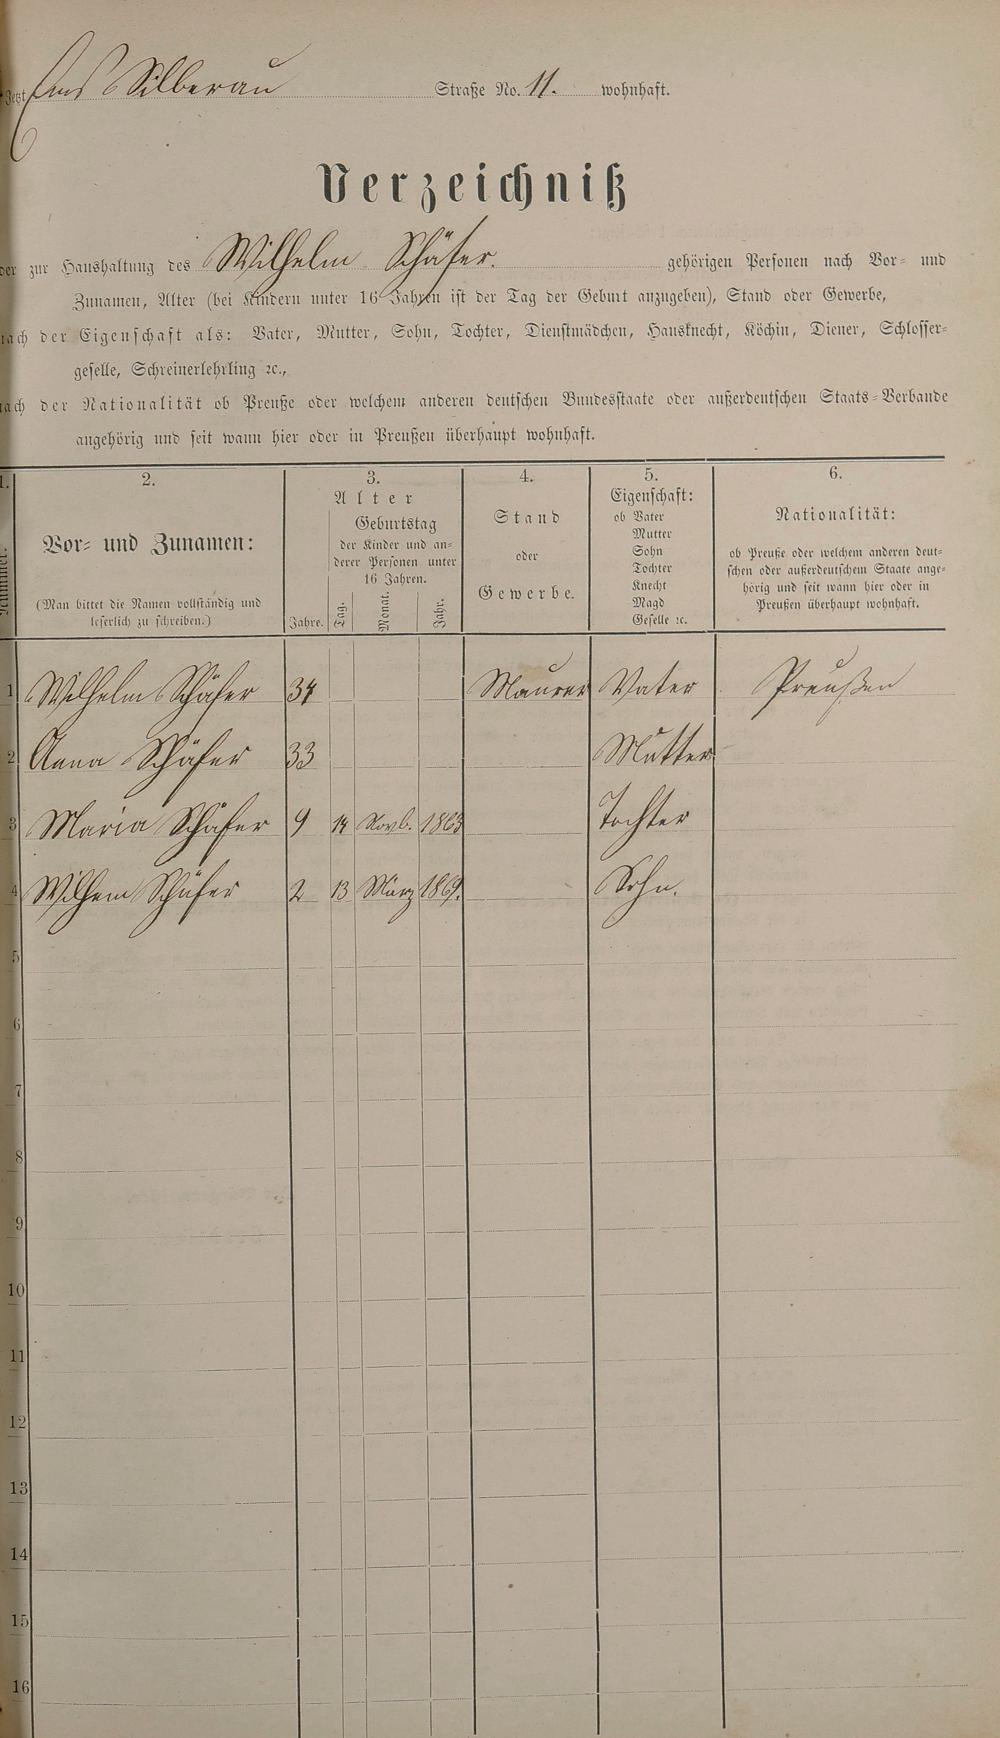 Jetzt Ems Silberau Straße No. 11. wohnhaft.
Verzeichniß
der zur Haushaltung des Wilhelm Schäfer. gehörigen Personen nach Vor- und
Zunamen, Alter (bei Kindern unter 16 Jahren ist der Tag der Geburt anzugeben), Stand oder Gewerbe,
nach der Eigenschaft als: Vater, Mutter, Sohn, Tochter, Dienstmädchen, Hausknecht, Köchin, Diener, Schlosser-
geselle, Schreinerlehrling ꝛc.,
nach der Nationalität ob Preuße oder welchem anderen deutschen Bundesstaate oder außerdeutschen Staats-Verbande
angehörig und seit wann hier oder in Preußen überhaupt wohnhaft.
1. 2. 3. 4. 5. 6.
Nummer.
Vor- und Zunamen:
(Man bittet die Namen vollständig und
leserlich zu schreiben.)
Alter
Jahre.
Geburtstag
der Kinder und an-
derer Personen unter
16 Jahren.
Tag. Monat. Jahr.
Stand
oder
Gewerbe.
Eigenschaft:
ob Vater
Mutter
Sohn
Tochter
Knecht
Magd
Geselle ꝛc.
Nationalität:
ob Preuße oder welchem anderen deut-
schen oder außerdeutschem Staate ange-
hörig und seit wann hier oder in
Preußen überhaupt wohnhaft.
1 Wilhelm Schäfer 34 Maurer Vater Preußen
2 Anna Schäfer 33 Mutter
3 Maria Schäfer 9 14 Novb. 1863 Tochter
4 Wilhem Schäfer 2 13 März 1869. Sohn.
5
6
7
8
9
10
11
12
13
14
15
16